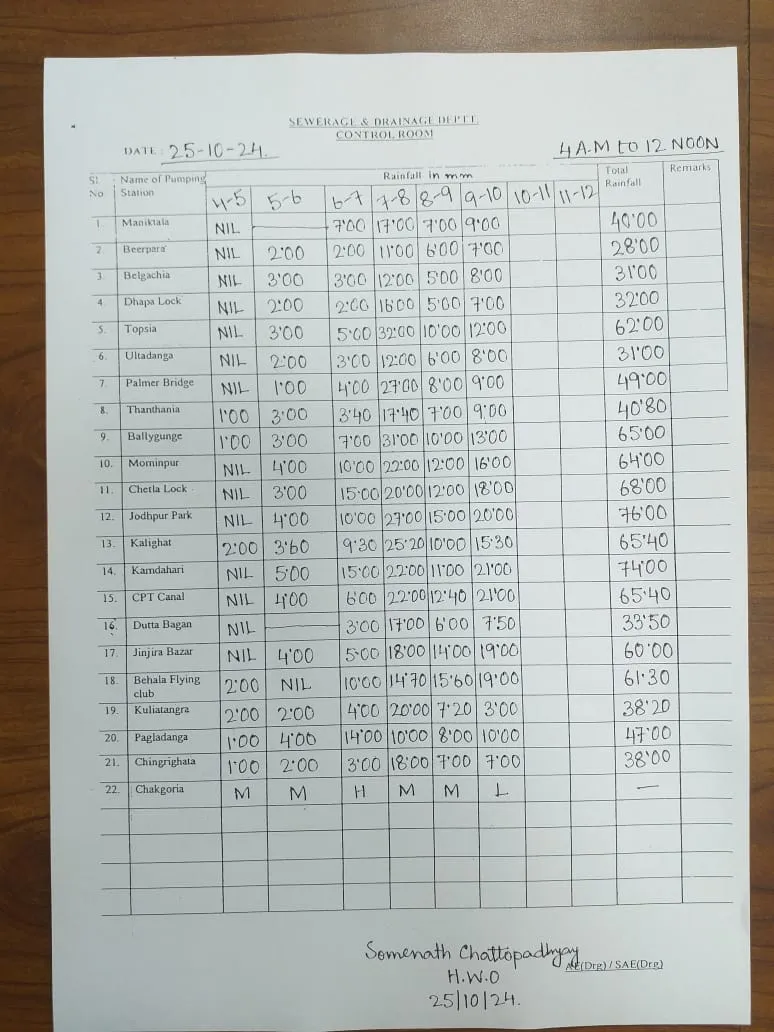 SEWERAGE & DRAINAGE DEPTT.
CONTROL ROOM
DATE : 25-10-24. 4 A.M to 12 NOON
Sl. No Name of Pumping Station Rainfall in mm Total Rainfall Remarks
4-5 5-6 6-7 7-8 8-9 9-10 10-11 11-12
1. Maniktala NIL — 7'00 17'00 7'00 9'00 40'00
2. Beerpara NIL 2'00 2'00 11'00 6'00 7'00 28'00
3. Belgachia NIL 3'00 3'00 12'00 5'00 8'00 31'00
4. Dhapa Lock NIL 2'00 2'00 16'00 5'00 7'00 32'00
5. Topsia NIL 3'00 5'00 32'00 10'00 12'00 62'00
6. Ultadanga NIL 2'00 3'00 12'00 6'00 8'00 31'00
7. Palmer Bridge NIL 1'00 4'00 27'00 8'00 9'00 49'00
8. Thanthania 1'00 3'00 3'40 17'40 7'00 9'00 40'80
9. Ballygunge 1'00 3'00 7'00 31'00 10'00 13'00 65'00
10. Mominpur NIL 4'00 10'00 22'00 12'00 16'00 64'00
11. Chetla Lock NIL 3'00 15'00 20'00 12'00 18'00 68'00
12. Jodhpur Park NIL 4'00 10'00 27'00 15'00 20'00 76'00
13. Kalighat 2'00 3'60 9'30 25'20 10'00 15'30 65'40
14. Kamdahari NIL 5'00 15'00 22'00 11'00 21'00 74'00
15. CPT Canal NIL 4'00 6'00 22'00 12'40 21'00 65'40
16. Dutta Bagan NIL — 3'00 17'00 6'00 7'50 33'50
17. Jinjira Bazar NIL 4'00 5'00 18'00 14'00 19'00 60'00
18. Behala Flying club 2'00 NIL 10'00 14'70 15'60 19'00 61'30
19. Kuliatangra 2'00 2'00 4'00 20'00 7'20 3'00 38'20
20. Pagladanga 1'00 4'00 14'00 10'00 8'00 10'00 47'00
21. Chingrighata 1'00 2'00 3'00 18'00 7'00 7'00 38'00
22. Chakgoria M M H M M L —
Somenath Chattopadhyay
AE(Drg) / SAE(Drg)
H.W.O
25/10/24.